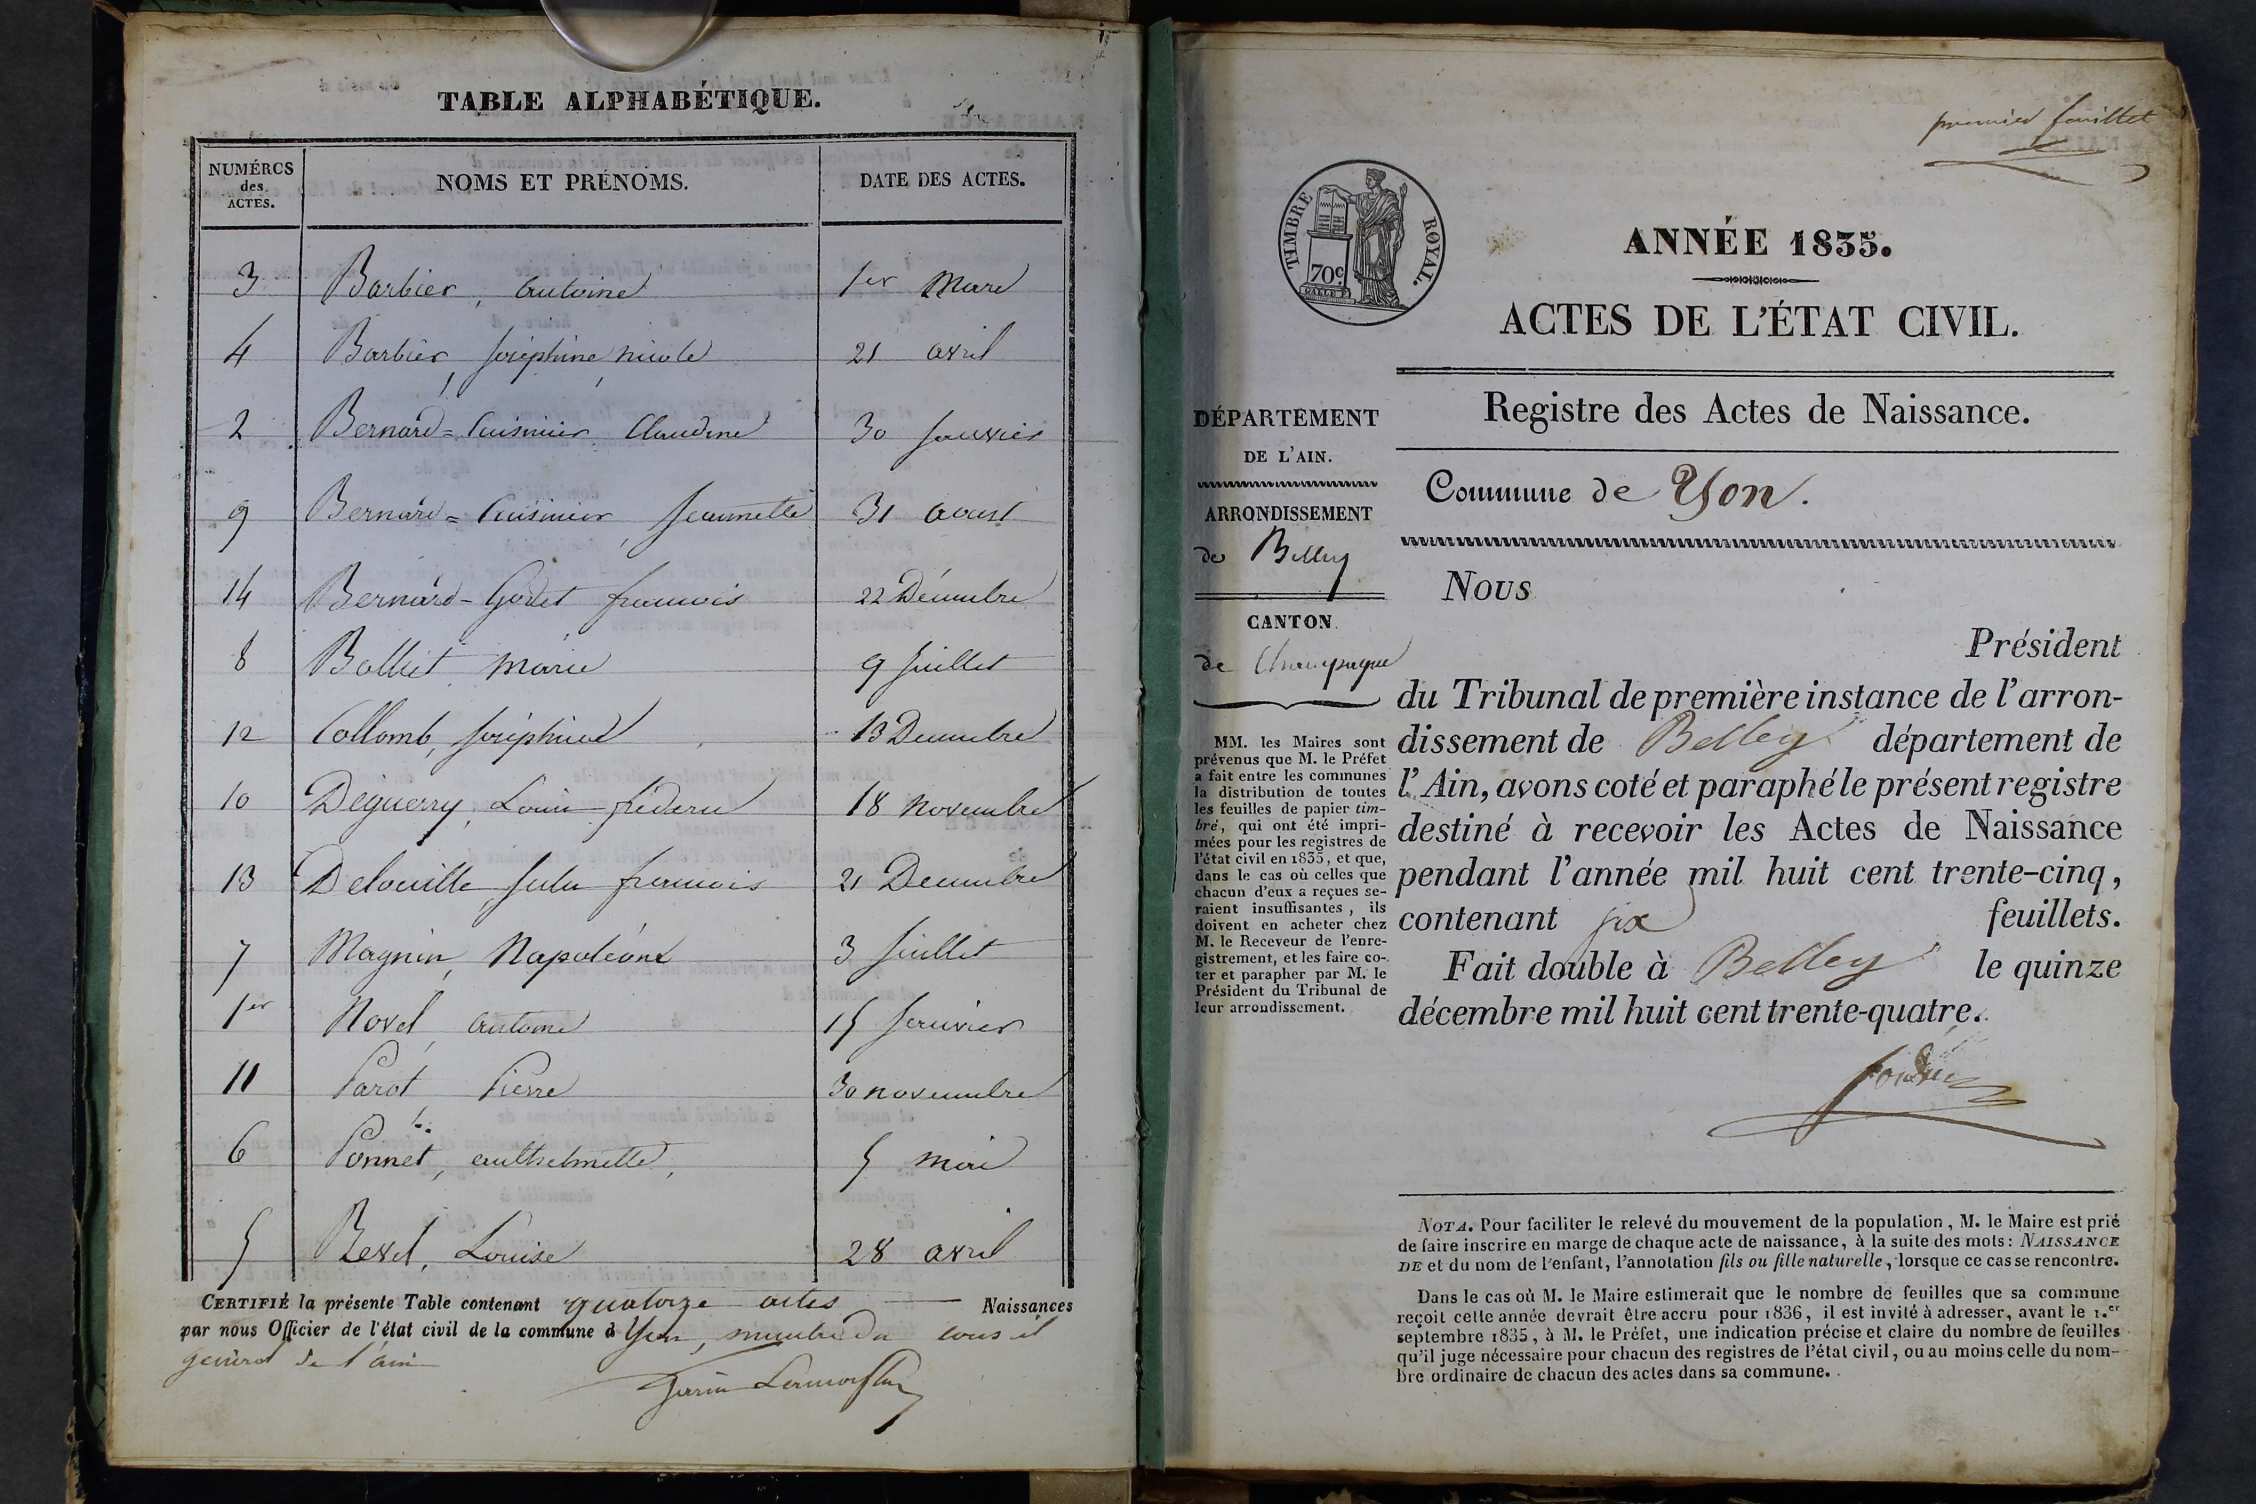 TABLE ALPHABÉTIQUE.
NUMÉROS des ACTES. NOMS ET PRÉNOMS. DATE DES ACTES.
3 Barbier, antoine 1er Mars
4 Barbier, joséphine, nicole 21 avril
2 Bernard=Cuisinier Claudine 30 janvier
9 Bernard=Cuisinier, Jeannette 31 aoust
14 Bernard-Godet françois 22 Décembre
8 Bolliet marie 9 juillet
12 Collomb, joséphine 13 Decembre
10 Deguerry, Louis frédéric 18 novembre
13 Delouille, jules françois 21 Decembre
7 Magnin, Napoléone 3 juillet
1er Novel, antoine 15 janvier
11 Parot Pierre 30 novembre
6 Ponnet, anthelmette, 5 mai
5 Revel, Louise 28 avril
CERTIFIÉ la présente Table contenant quatorze actes Naissances
par nous Officier de l'état civil de la commune d'Yon, membre du conseil
général de l'ain
premier feuillet
TIMBRE ROYAL.
70c
ANNÉE 1835.
ACTES DE L'ÉTAT CIVIL.
Registre des Actes de Naissance.
Commune de Yon.
DÉPARTEMENT
DE L'AIN.
ARRONDISSEMENT
de Belley
CANTON
de Champagne
MM. les Maires sont
prévenus que M. le Préfet
a fait entre les communes
la distribution de toutes
les feuilles de papier tim-
bré, qui ont été impri-
mées pour les registres de
l'état civil en 1835, et que,
dans le cas où celles que
chacun d'eux a reçues se-
raient insuffisantes, ils
doivent en acheter chez
M. le Receveur de l'enre-
gistrement, et les faire co-
ter et parapher par M. le
Président du Tribunal de
leur arrondissement.
Nous
Président
du Tribunal de première instance de l'arron-
dissement de Belley département de
l'Ain, avons coté et paraphé le présent registre
destiné à recevoir les Actes de Naissance
pendant l'année mil huit cent trente-cinq,
contenant six feuillets.
Fait double à Belley le quinze
décembre mil huit cent trente-quatre.
NOTA. Pour faciliter le relevé du mouvement de la population, M. le Maire est prié
de faire inscrire en marge de chaque acte de naissance, à la suite des mots: NAISSANCE
DE et du nom de l'enfant, l'annotation fils ou fille naturelle, lorsque ce cas se rencontre.
Dans le cas où M. le Maire estimerait que le nombre de feuilles que sa commune
reçoit cette année devrait être accru pour 1836, il est invité à adresser, avant le 1.er
septembre 1835, à M. le Préfet, une indication précise et claire du nombre de feuilles
qu'il juge nécessaire pour chacun des registres de l'état civil, ou au moins celle du nom-
bre ordinaire de chacun des actes dans sa commune.